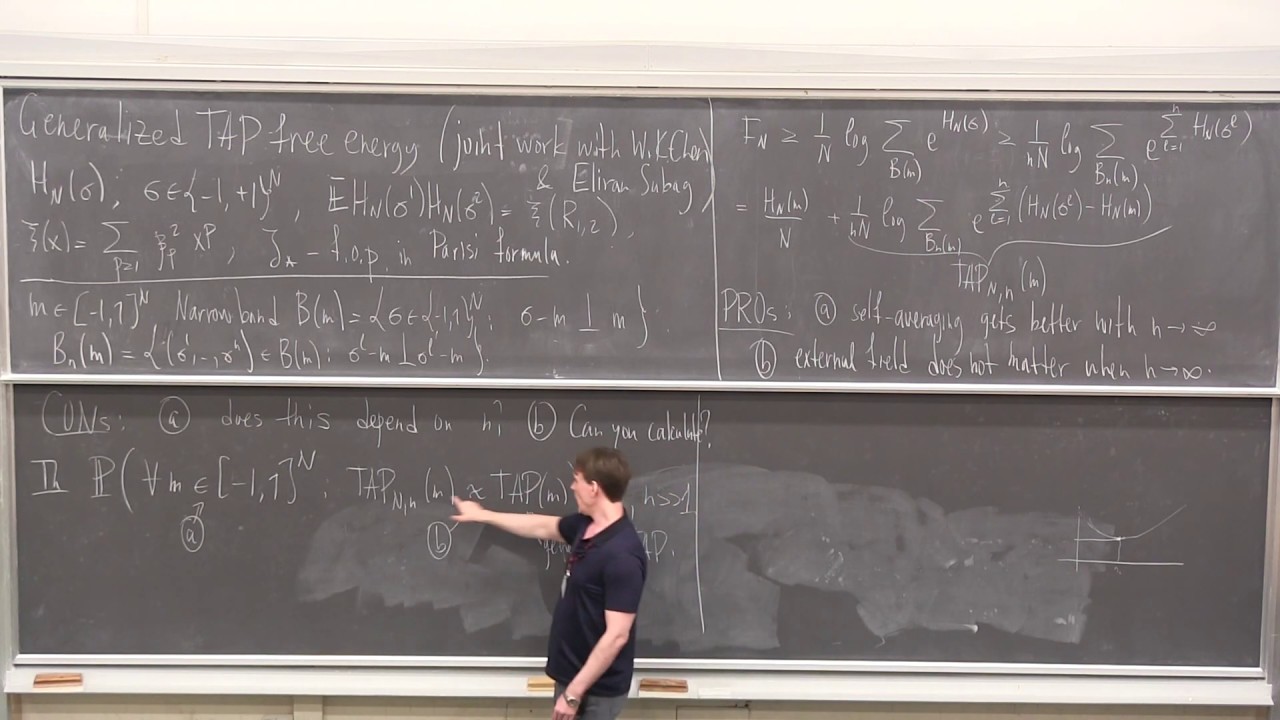 Generalized TAP free energy (joint work with W.K Chen
& Eliran Subag)
H_N(σ), σ∈{-1,+1}^N, E H_N(σ¹)H_N(σ²) = ξ(R_{1,2}),
ξ(x) = ∑_{p=1} β_p² x^p, ζ_* – f.o.p. in Parisi formula.
m∈[-1,1]^N Narrow band B(m) = {σ∈{-1,1}^N : σ-m ⊥ m}.
B_n(m) = {(σ¹,..,σⁿ)∈B(m): σ^ℓ-m ⊥ σ^ℓ'-m}.
F_N ≥ 1/N log ∑_{B(m)} e^{H_N(σ)} ≥ 1/nN log ∑_{B_n(m)} e^{∑_{ℓ=1}^n H_N(σ^ℓ)}
= H_N(m)/N + 1/nN log ∑_{B_n(m)} e^{∑_{ℓ=1}^n (H_N(σ^ℓ)-H_N(m))}
TAP_{N,n}(m)
PROs: ⓐ self-averaging gets better with n→∞
ⓑ external field does not matter when n→∞.
CONs: ⓐ does this depend on n? ⓑ Can you calculate?
Th P(∀m∈[-1,1]^N : TAP_{N,n}(m) ≈ TAP(m) , n>>1
ⓐ ⓑ AP.